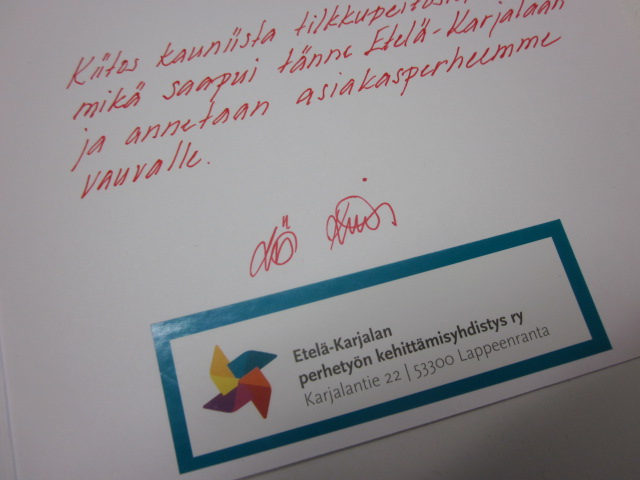 Kiitos kauniista
mikä saapui tänne Etelä-Karjalaan
ja annetaan asiakasperheemme
vauvalle.
Etelä-Karjalan
perhetyön kehittämisyhdistys ry
Karjalantie 22 | 53300 Lappeenranta